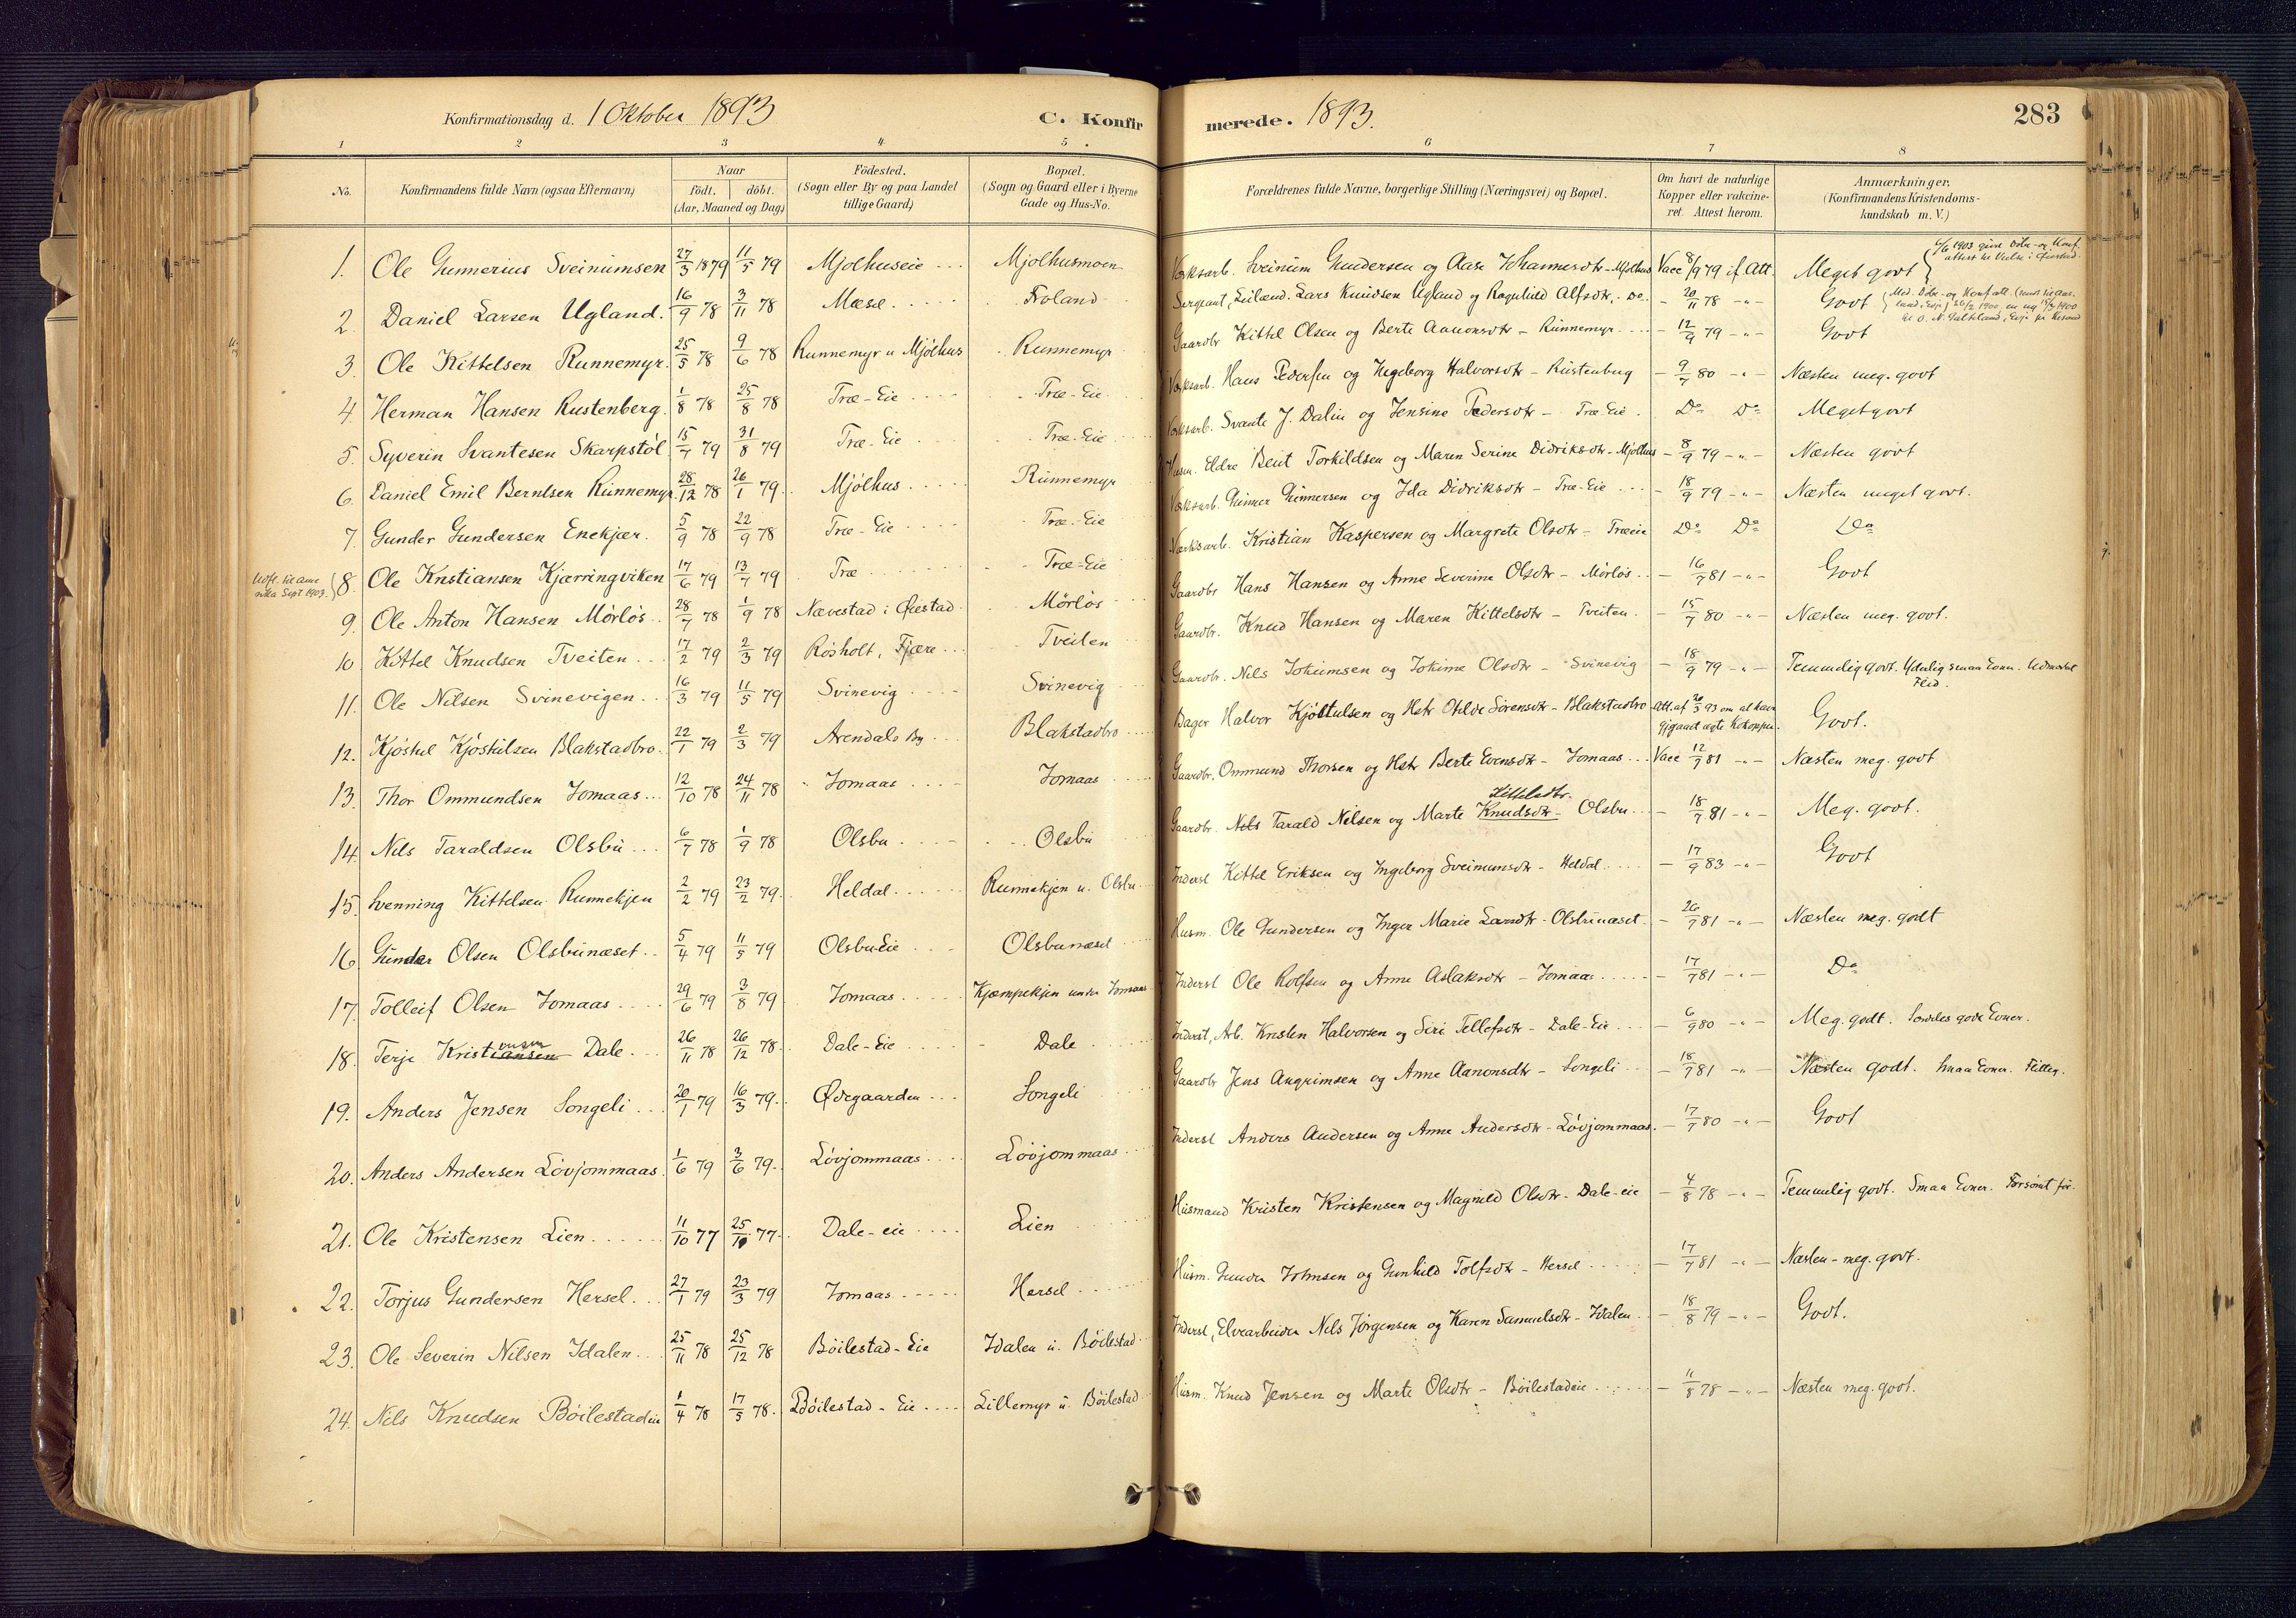 Konfirmationsdag d. 1 Oktober 1893 C. Konfir
merede. 1893. 283
1 2 3 4 5 6 7 8
No. Konfirmandens fulde Navn (ogsaa Efternavn) Naar födt. döbt. (Aar, Maaned og Dag) Födested. (Sogn eller By og paa Landet tillige Gaard) Bopæl. (Sogn og Gaard eller i Byerne Gade og Hus-No. Forældrenes fulde Navne, borgerlige Stilling (Næringsvei) og Bopæl. Om havt de naturlige Kopper eller vakcineret. Attest herom. Anmærkninger. (Konfirmandens Kristendomskundskab m. V.)
1. Ole Gunnerius Sveinumsen 27/3 1879 11/5 79 Mjolhuseie Mjolhusmoen Værksarb. Sveinum Gundersen og Aase Johannesdtr - Mjolhus Vacc 8/9 79 if. Att. Meget godt
2. Daniel Larsen Ugland. 16/9 78 3/11 78 Mæsel Froland Sergeant, Leilænd. Lars Knudsen Ugland og Ragnhild Alfsdtr. Do. - 20/11 78 -"- Godt
3. Ole Kittelsen Runnemyr. 25/5 78 9/6 78 Runnemyr u Mjölhus Runnemyr Gaardbr Kittel Olsen og Berte Aanonsdtr - Runnemyr - 12/9 79 -"- Godt
4. Herman Hansen Rustenberg. 1/8 78 25/8 78 Træ-Eie Træ-Eie Værksarb. Hans Pedersen og Ingeborg Halvorsdtr - Rustenberg - 9/7 80 -"- Næsten meg. godt
5. Syverin Svantesen Skarpstöl 15/7 79 31/8 79 Træ-Eie Træ-Eie Værksarb. Svante J. Dalin og Jensine Pedersdtr - Træ-Eie. Do Do Meget godt
6. Daniel Emil Berntsen Runnemyr 28/12 78 26/1 79. Mjölhus Runnemyr Husm. Eldre Bent Torkildsen og Maren Serine Didriksdtr - Mjölhus - 8/9 79 -"- Næsten godt
7. Gunder Gundersen Enekjær. 5/9 78 22/9 78 Træ-Eie Træ-Eie Værksarb. Gunner Gunnersen og Ida Didriksdtr - Træ-Eie - 18/9 79 -"- Næsten meget godt.
8. Ole Kristiansen Kjærringviken 17/6 79 13/7 79 Træ Træ-Eie Værksarb. Kristian Kaspersen og Margrete Olsdtr - Træeie Do Do Do
9. Ole Anton Hansen Mörlös 28/7 78 1/9 78 Nævestad i Øiestad Mörlös Gaardbr Hans Hansen og Anne Severine Olsdtr - Mörlös - 16/7 81 -"- Godt
10. Kittel Knudsen Tveiten 17/2 79 2/3 79 Rösholt, Fjære Tveiten Gaardbr. Knud Hansen og Maren Kittelsdtr - Tveiten - 15/7 80 -"- Næsten meg. godt.
11. Ole Nilsen Svinevigen 16/3 79 11/5 79 Svinevig Svinevig Gaardbr. Nils Jokumsen og Jokime Olsdtr - Svinevig - 18/9 79 -"- Temmelig godt. Yderlig smaa Evner. Udmærket Flid.
12. Kjöstul Kjöstulsen Blakstadbro. 22/1 79 2/3 79 Arendals By Blakstadbro Bager Halvor Kjöstulsen og Hstr Otilde Sörensdtr - Blakstadbro Att. af 20/3 93 om at have gjgaaet ægte Kokopper. Godt.
13. Thor Ommundsen Jomaas 12/10 78 24/11 78 Jomaas Jomaas Gaardbr. Ommund Thorsen og Hstr Berte Evensdtr - Jomaas Vacc 12/7 81 -"- Næsten meg. godt
14. Nils Taraldsen Olsbu 6/7 78 1/9 78 Olsbu Olsbu Gaardbr. Nils Tarald Nilsen og Marte Knudsdtr Kittelsdtr. - Olsbu - 18/7 81 -"- Meg. godt.
15. Svenning Kittelsen Runnekjen 2/2 79 23/2 79. Heldal Runnekjen u. Olsbu Inderst Kittel Eriksen og Ingeborg Sveinumsdtr - Heldal - 17/9 83 -"- Godt
16. Gunder Olsen Olsbunæset 5/4 79 11/5 79 Olsbu Eie Olsbunæset Husm. Ole Gundersen og Inger Marie Larsdtr - Olsbunæset - 26/7 81 -"- Næsten meg. godt
17. Tolleif Olsen Jomaas 29/6 79 3/8 79 Jomaas Kjæmpekjen under Jomaas Inderst Ole Rolfsen og Anne Aslaksdtr - Jomaas - 17/7 81 -"- Do
18. Terje Kristiansen ensen Dale 26/11 78 26/12 78. Dale-Eie Dale Inderst, Arb. Kristen Halvorsen og Siri Tellefsdtr - Dale-Eie - 6/9 80 -"- Meg. godt. Særdeles gode Evner.
19. Anders Jensen Songeli 20/1 79 16/3 79. Ødegaarden Songeli Gaardbr Jens Angrimsen og Anne Aanonsdtr - Songeli - 18/7 81 -"- Næsten godt. Smaa Evner. Flittig.
20. Anders Andersen Lövjommaas 1/6 79 3/6 79. Lövjommaas Lövjommaas Inderst Anders Andersen og Anne Andersdtr - Lövjommaas. - 17/7 80 -"- Godt
21. Ole Kristensen Lien 11/10 77 25/10 77. Dale-eie Lien Husmand Kristen Kristensen og Magnild Olsdtr - Dale-eie - 4/8 78 -"- Temmelig godt. Smaa Evner. Forsömt før.
22. Torjus Gundersen Hersel 27/1 79 23/3 79 Jomaas Hersel Husm. Gunder Johnsen og Gunhild Tolfsdtr - Hersel - 17/7 81 -"- Næsten-meg. godt.
23. Ole Severin Nilsen Idalen 25/11 78 25/12 78 Böilestad-Eie Idalen u. Böilestad Inderst, Elvearbeider Nils Jörgensen og Karen Samuelsdtr - Idalen - 18/8 79 -"- Godt.
24. Nils Knudsen Böilestadeie 1/4 78 17/5 78. Böilestad-Eie Lillemyr u. Böilestad Husm. Knud Jensen og Marte Olsdtr - Böilestadeie - 11/8 78 -"- Næsten meg. godt.